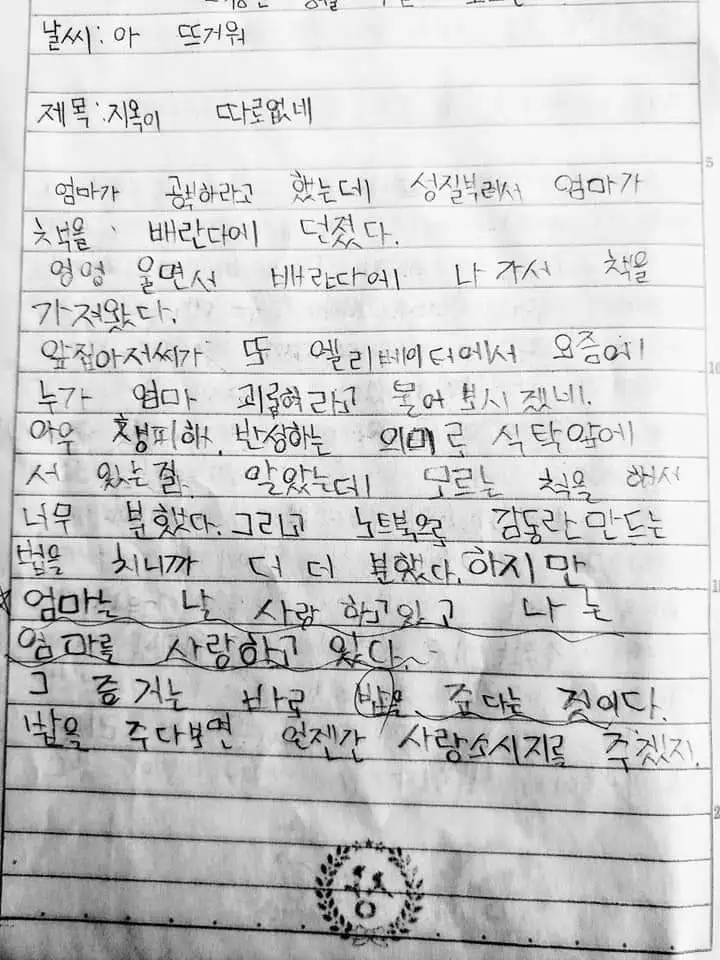 날씨: 아 뜨거워
제목: 지옥이 따로없네
엄마가 공부하라고 했는데 성질부려서 엄마가
책을 배란다에 던졌다.
엉엉 울면서 배란다에 나가서 책을
가져왔다.
앞집아저씨가 또 엘리베이터에서 요즘에
누가 엄마 괴롭혀라고 물어보시겠네.
아우 챙피해. 반성하는 의미로 식탁앞에
서 있는걸 알았는데 모르는 척을 해서
너무 분했다. 그리고 노트북으로 감동란만드는
법을 치니까 더 더 분했다. 하지만
엄마는 날 사랑하고있고 나는
엄마를 사랑하고 있다.
그 증거는 바로 밥을 준다는 것이다.
밥을 주다보면 언젠간 사랑소시지를 주겠지.